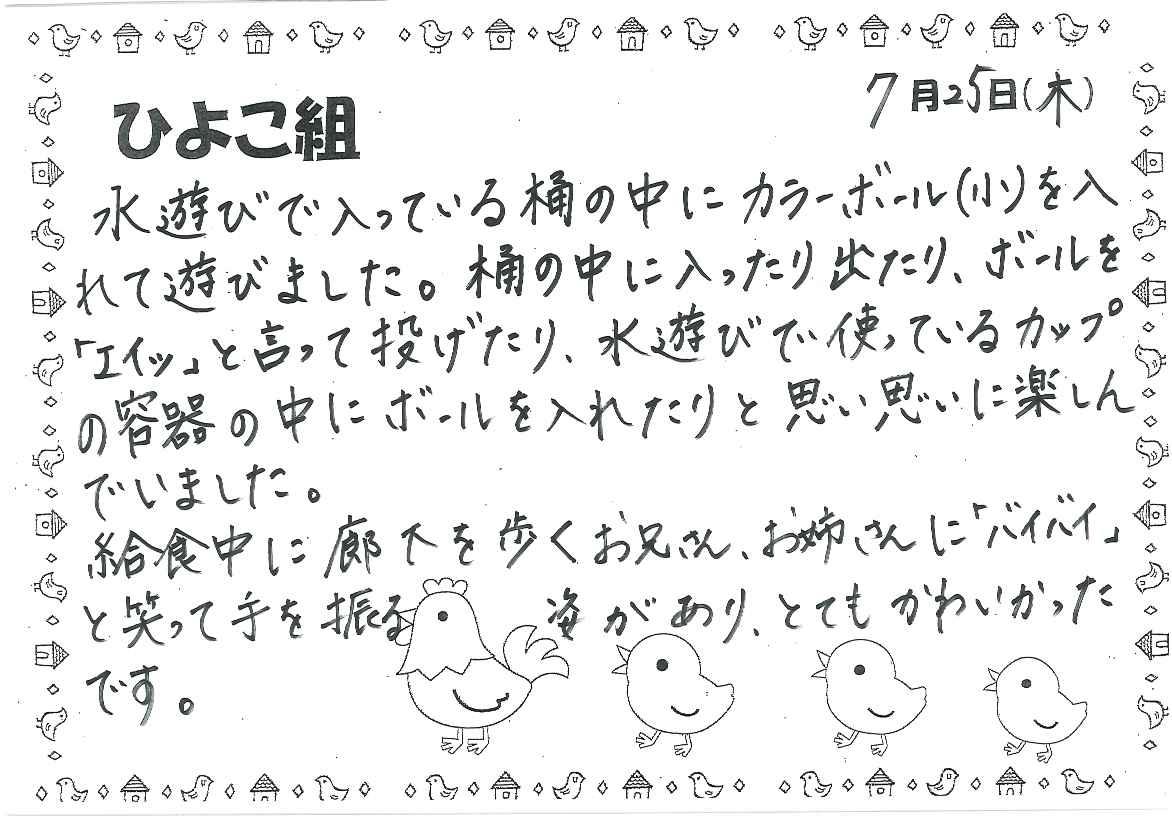 ひよこ組
7月25日(木)
水遊びで入っている桶の中にカラーボール(小)を入
れて遊びました。桶の中に入ったり出たり、ボールを
「エイッ」と言って投げたり、水遊びで使っているカップ
の容器の中にボールを入れたりと思い思いに楽しん
でいました。
給食中に廊下を歩くお兄さん、お姉さんに「バイバイ」
と笑って手を振る姿があり、とてもかわいかった
です。